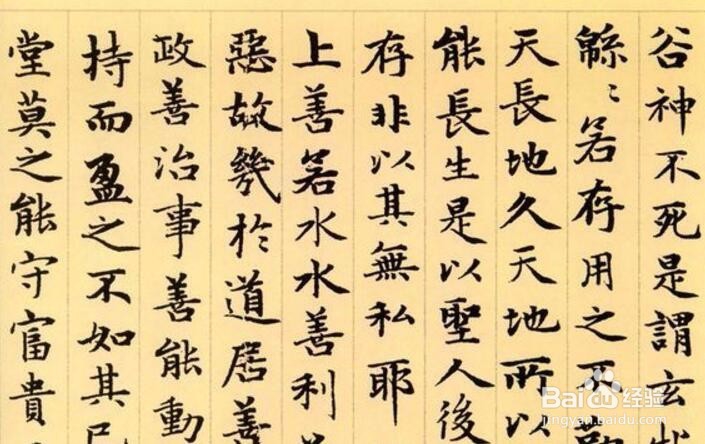 谷神不死是謂玄
緜〻若存用之不
天長地久天地所以
能長生是以聖人後
存非以其無私耶
上善若水水善利
惡故幾於道居善
政善治事善能動
持而盈之不如其已
堂莫之能守富貴
Baidu经验
jingyan.baidu.com